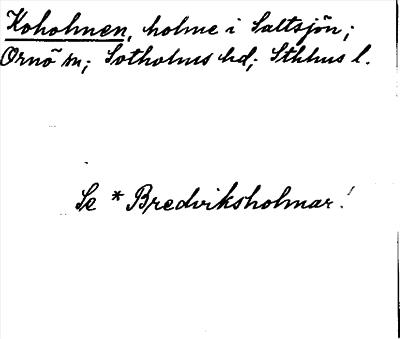 Koholmen, holme i Saltsjön;
Ornö sn; Sotholms hd; Sthlms l.
Se * Bredviksholmar!